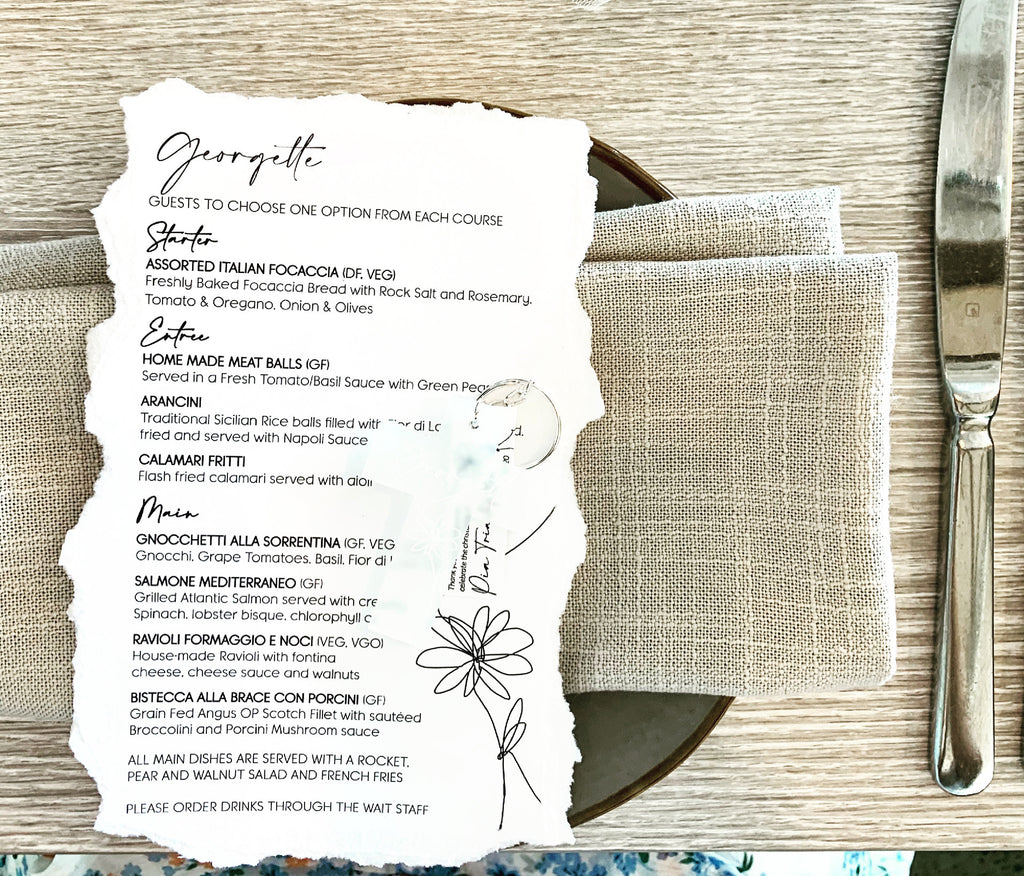 Georgette
GUESTS TO CHOOSE ONE OPTION FROM EACH COURSE
Starter
ASSORTED ITALIAN FOCACCIA (DF, VEG)
Freshly Baked Focaccia Bread with Rock Salt and Rosemary,
Tomato & Oregano, Onion & Olives
Entree
HOME MADE MEAT BALLS (GF)
Served in a Fresh Tomato/Basil Sauce with Green
ARANCINI
Traditional Sicilian Rice balls filled with Fior di
fried and served with Napoli Sauce
CALAMARI FRITTI
Flash fried calamari served with
Main
GNOCCHETTI ALLA SORRENTINA (GF, VEG
Gnocchi, Grape Tomatoes, Basil, Fior di
SALMONE MEDITERRANEO (GF)
Grilled Atlantic Salmon served with
Spinach, lobster bisque, chlorophyll
RAVIOLI FORMAGGIO E NOCI (VEG, VGO)
House-made Ravioli with fontina
cheese, cheese sauce and walnuts
BISTECCA ALLA BRACE CON PORCINI (GF)
Grain Fed Angus OP Scotch Fillet with sautéed
Broccolini and Porcini Mushroom sauce
ALL MAIN DISHES ARE SERVED WITH A ROCKET,
PEAR AND WALNUT SALAD AND FRENCH FRIES
PLEASE ORDER DRINKS THROUGH THE WAIT STAFF
celebrate the
Pia Tria